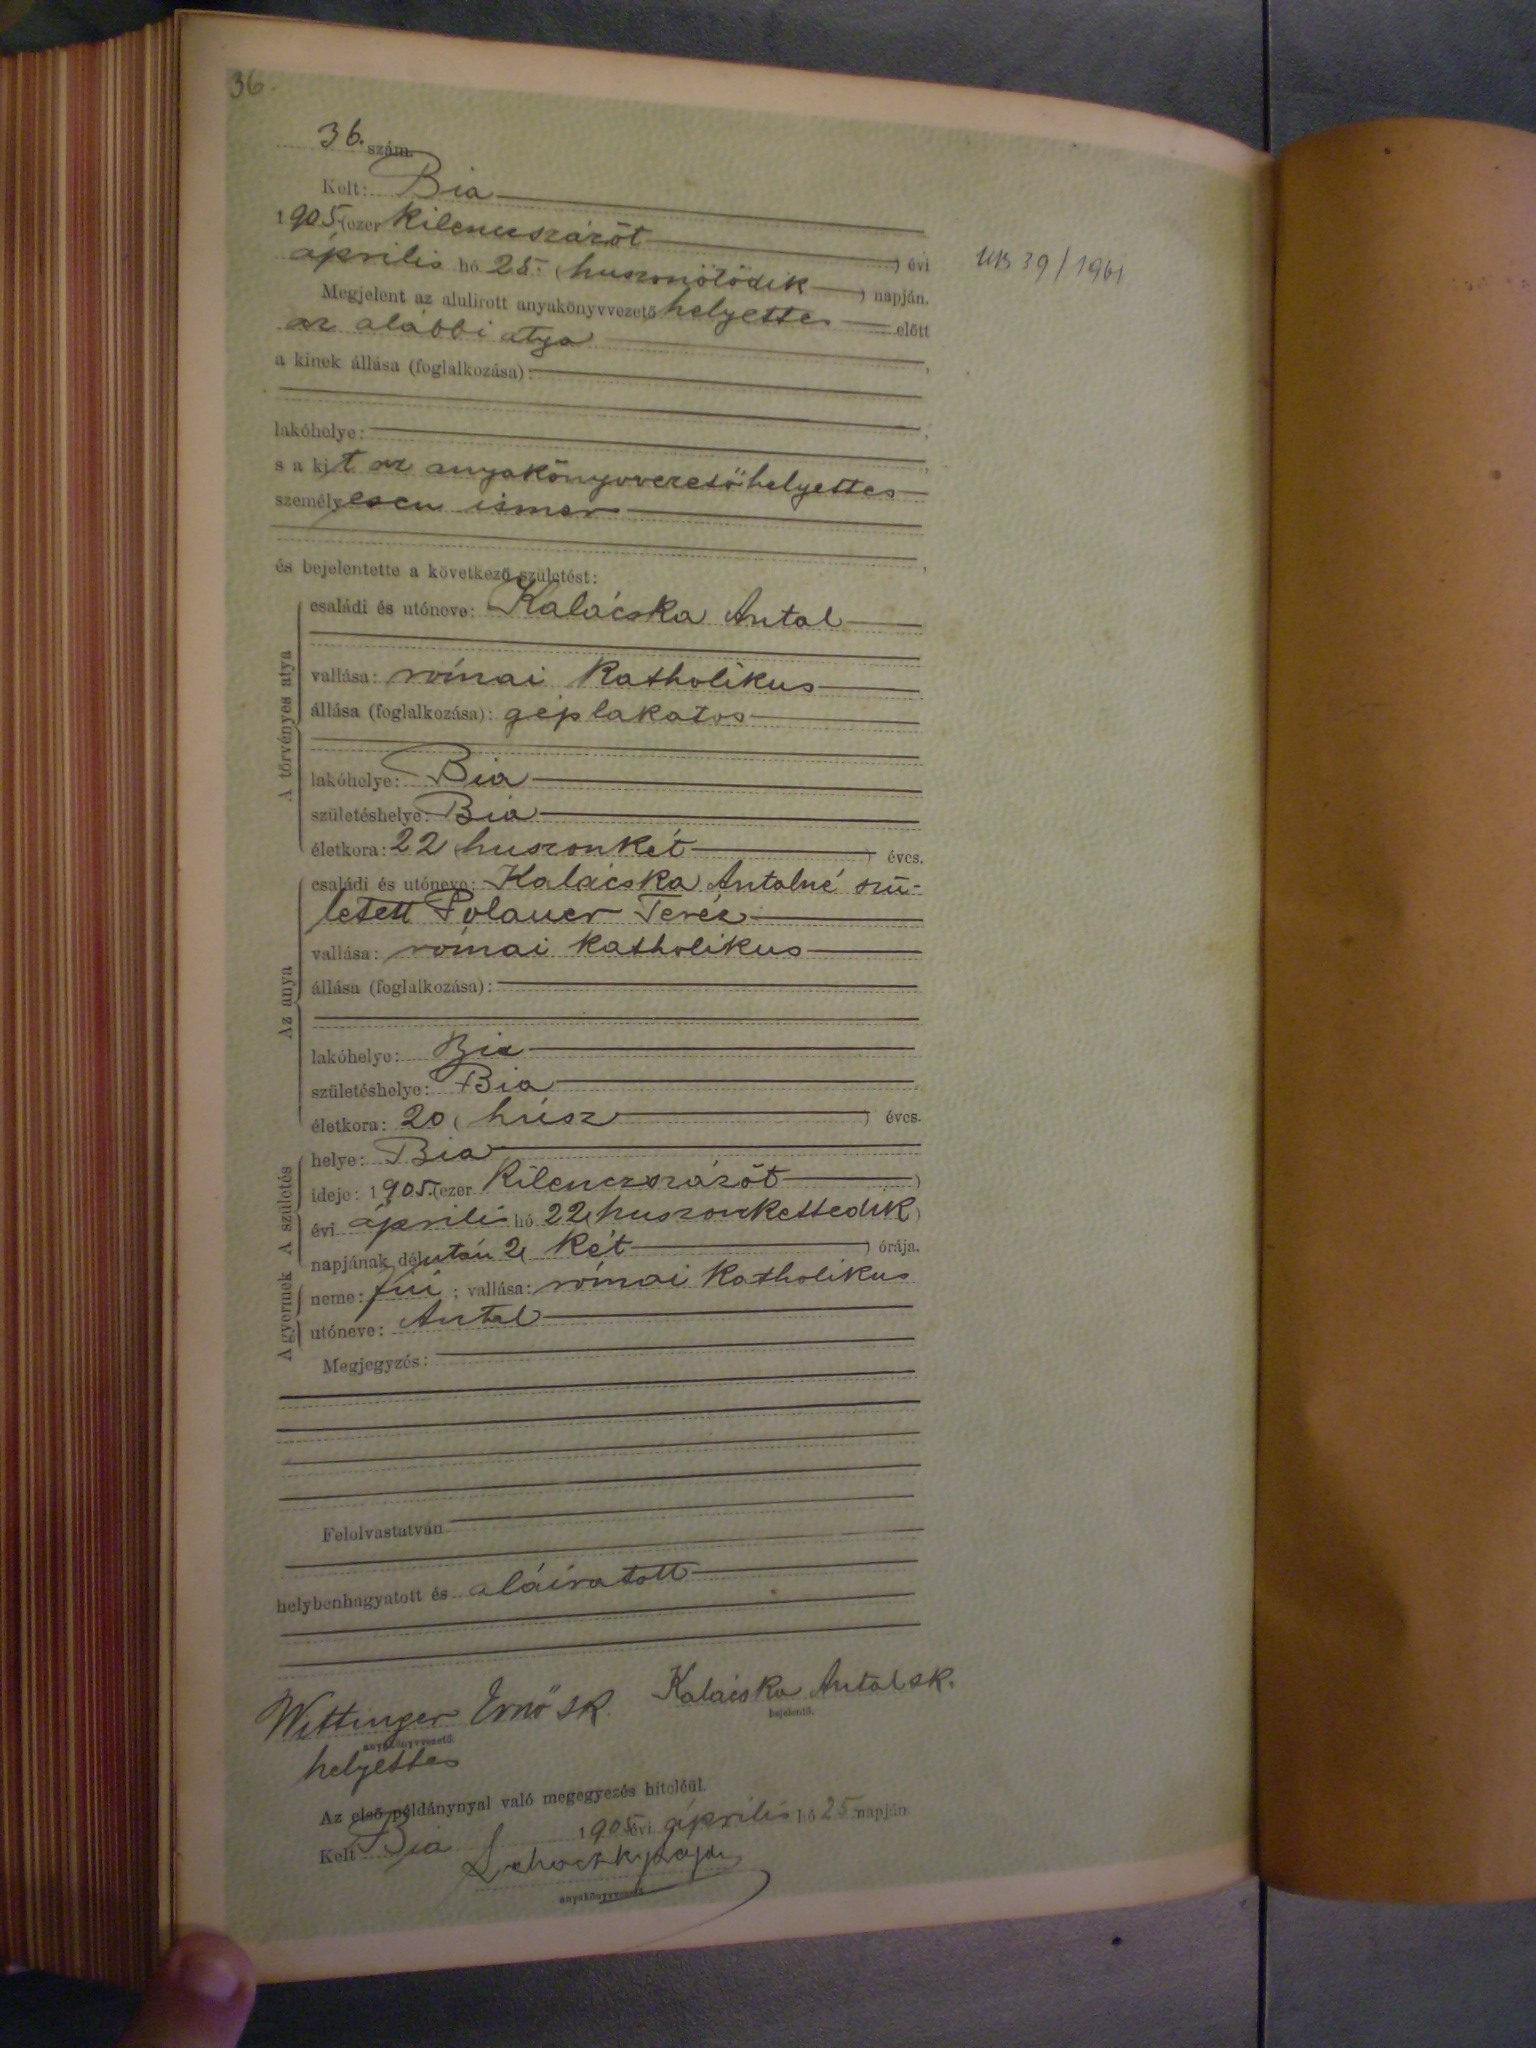 36.
36. szám.
Kelt: Bia
1905 (ezer kilenczszázöt) évi
április hó 25. (huszonötödik) napján.
UB 39/1961
Megjelent az alulirott anyakönyvvezető helyettes előtt
az alábbi atya,
a kinek állása (foglalkozása):
lakóhelye:
s a kit az anyakönyvvezetőhelyettes
személyesen ismer
és bejelentette a következő születést:
A törvényes atya
családi és utóneve: Kalácska Antal
vallása: római katholikus
állása (foglalkozása): géplakatos
lakóhelye: Bia
születéshelye: Bia
életkora: 22 (huszonkét) éves.
Az anya
családi és utóneve: Kalácska Antalné szü-
letett Polauer Teréz
vallása: római katholikus
állása (foglalkozása):
lakóhelye: Bia
születéshelye: Bia
életkora: 20 (húsz) éves.
A születés
helye: Bia
ideje: 1905. (ezer kilenczszázöt)
évi április hó 22 (huszonkettedik)
napjának délután 2 (két) órája.
A gyermek
neme: fiú; vallása: római katholikus
utóneve: Antal
Megjegyzés:
Felolvastatván
helybenhagyatott és aláíratott
Wittinger Ernő sk. Kalácska Antal sk.
anyakönyvvezető bejelentő.
helyettes
Az első példánynyal való megegyezés hiteléül.
Kelt Bia 1905 évi április hó 25 napján.
anyakönyvvezető